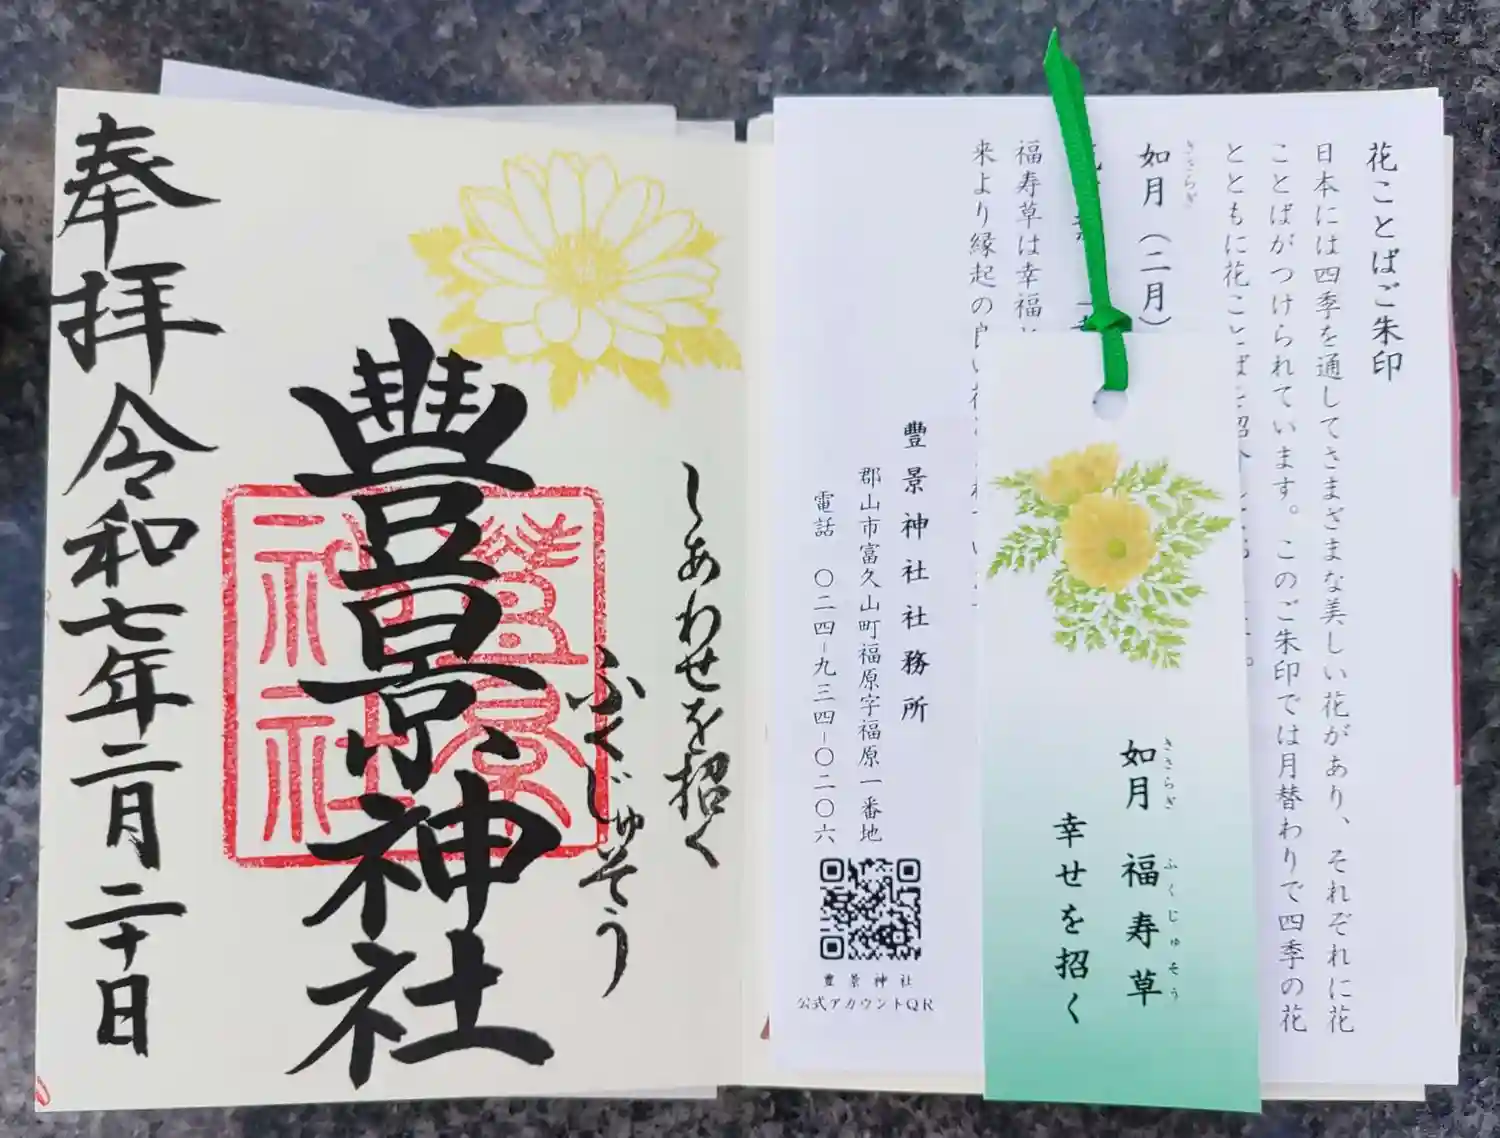 しあわせを招く
ふくじゅそう
豐景神社
豐景
神社
奉拝
令和七年二月二十日
花ことばご朱印
日本には四季を通してさまざまな美しい花があり、それぞれに花
ことばがつけられています。このご朱印では月替わりで四季の花
とともに花ことばを
如月（二月）
きさらぎ
福寿草は幸福
来より縁起の良い花
豐景神社社務所
郡山市富久山町福原字福原一番地
電話 〇二四-九三四-〇二〇六
豊景神社
公式アカウントQR
如月 福寿草
きさらぎ ふくじゅそう
幸せを招く